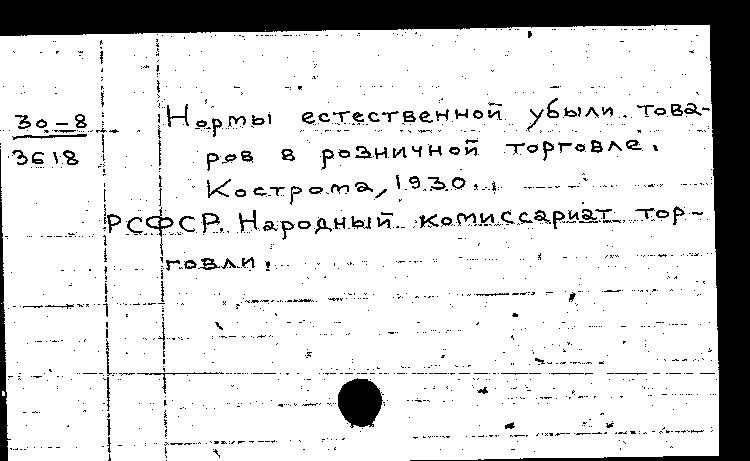 30-8
3618
Нормы естественной убыли това-
ров в розничной торговле.
Кострома, 1930.
РСФСР. Народный комиссариат тор-
говли.